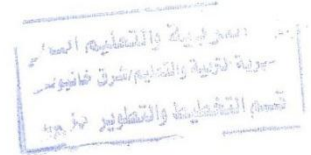 التربية والتعليم
مديرية التربية والتعليم/شرق خانيونس
قسم التخطيط والتطوير